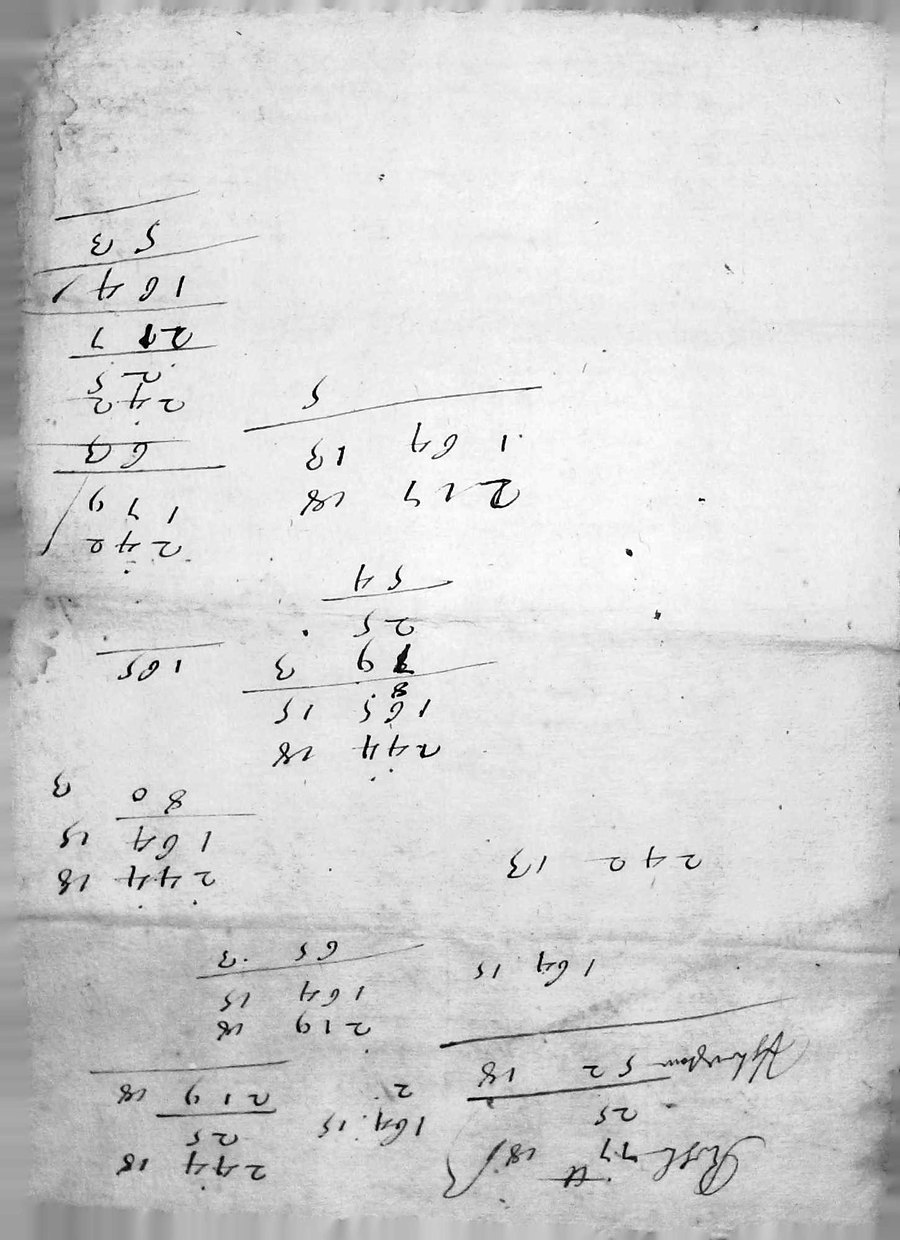 77 18
25
52 18
164 15
242 13
164 15
2
244 18
25
219 18
219 18
164 15
65 3
244 18
164 15
80 3
244 18
165 15
8
79 3
25
54
165
217 18
164 13
5
242
179
63
242
25
217
164
53